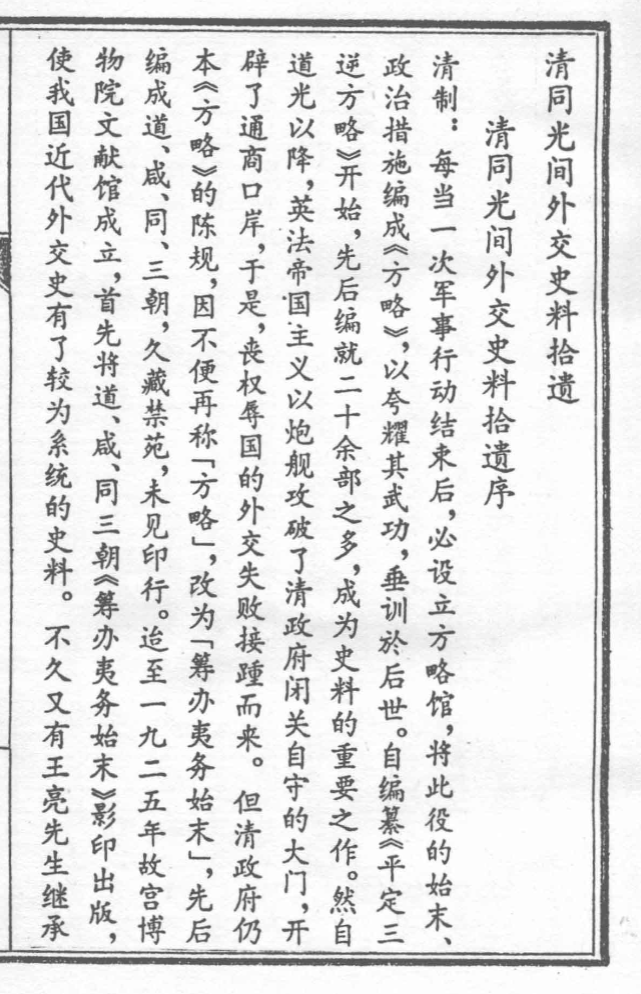 清同光间外交史料拾遗
清同光间外交史料拾遗序
清制：每当一次军事行动结束后，必设立方略馆，将此役的始末、
政治措施编成《方略》，以夸耀其武功，垂训於后世。自编纂《平定三
逆方略》开始，先后编就二十余部之多，成为史料的重要之作。然自
道光以降，英法帝国主义以炮舰攻破了清政府闭关自守的大门，开
辟了通商口岸，于是，丧权辱国的外交失败接踵而来。但清政府仍
本《方略》的陈规，因不便再称「方略」，改为「筹办夷务始末」，先后
编成道、咸、同、三朝，久藏禁苑，未见印行。迨至一九二五年故宫博
物院文献馆成立，首先将道、咸、同三朝《筹办夷务始末》影印出版，
使我国近代外交史有了较为系统的史料。不久又有王亮先生继承